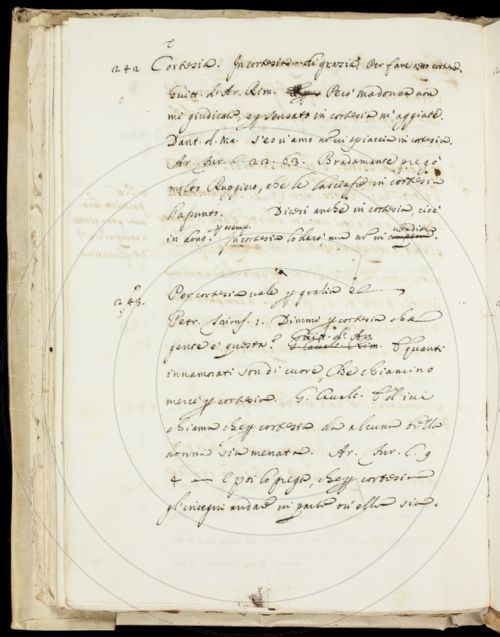 242 Cortesia. In cortesia di grazia. Per fare cortese.
Guitt. di Ar. Rim. Però Madonna non
mi giudicate, pensato in cortesia m'aggiate.
Dant. d. Ma. S'eo v'amo no vi spiaccia in cortesia.
Ar. Fur. C. 22. 63. Bradamante pregò
molto Ruggiero, che le lasciasse in cortesia
l'assunto. Dicesi anche in cortesia, cioè
in dono. In cortesia lo darò ma no in vendita.
243. Per cortesia vale p grazia
Petr. Trionf. 1. Dimmi p cortesia che
gente è questa? Guitt. di Ar. Rim. E quanti
innamorati son di cuore, Che chiamino
mercè p cortesia. G. Caval. Ed ivi
chiama che p cortesia da alcuna bella
donna sia menata. Ar. Fur. C. 9
4 E poi lo prega, che p cortesia
gl'insegni andar in parte ov'ella sia.